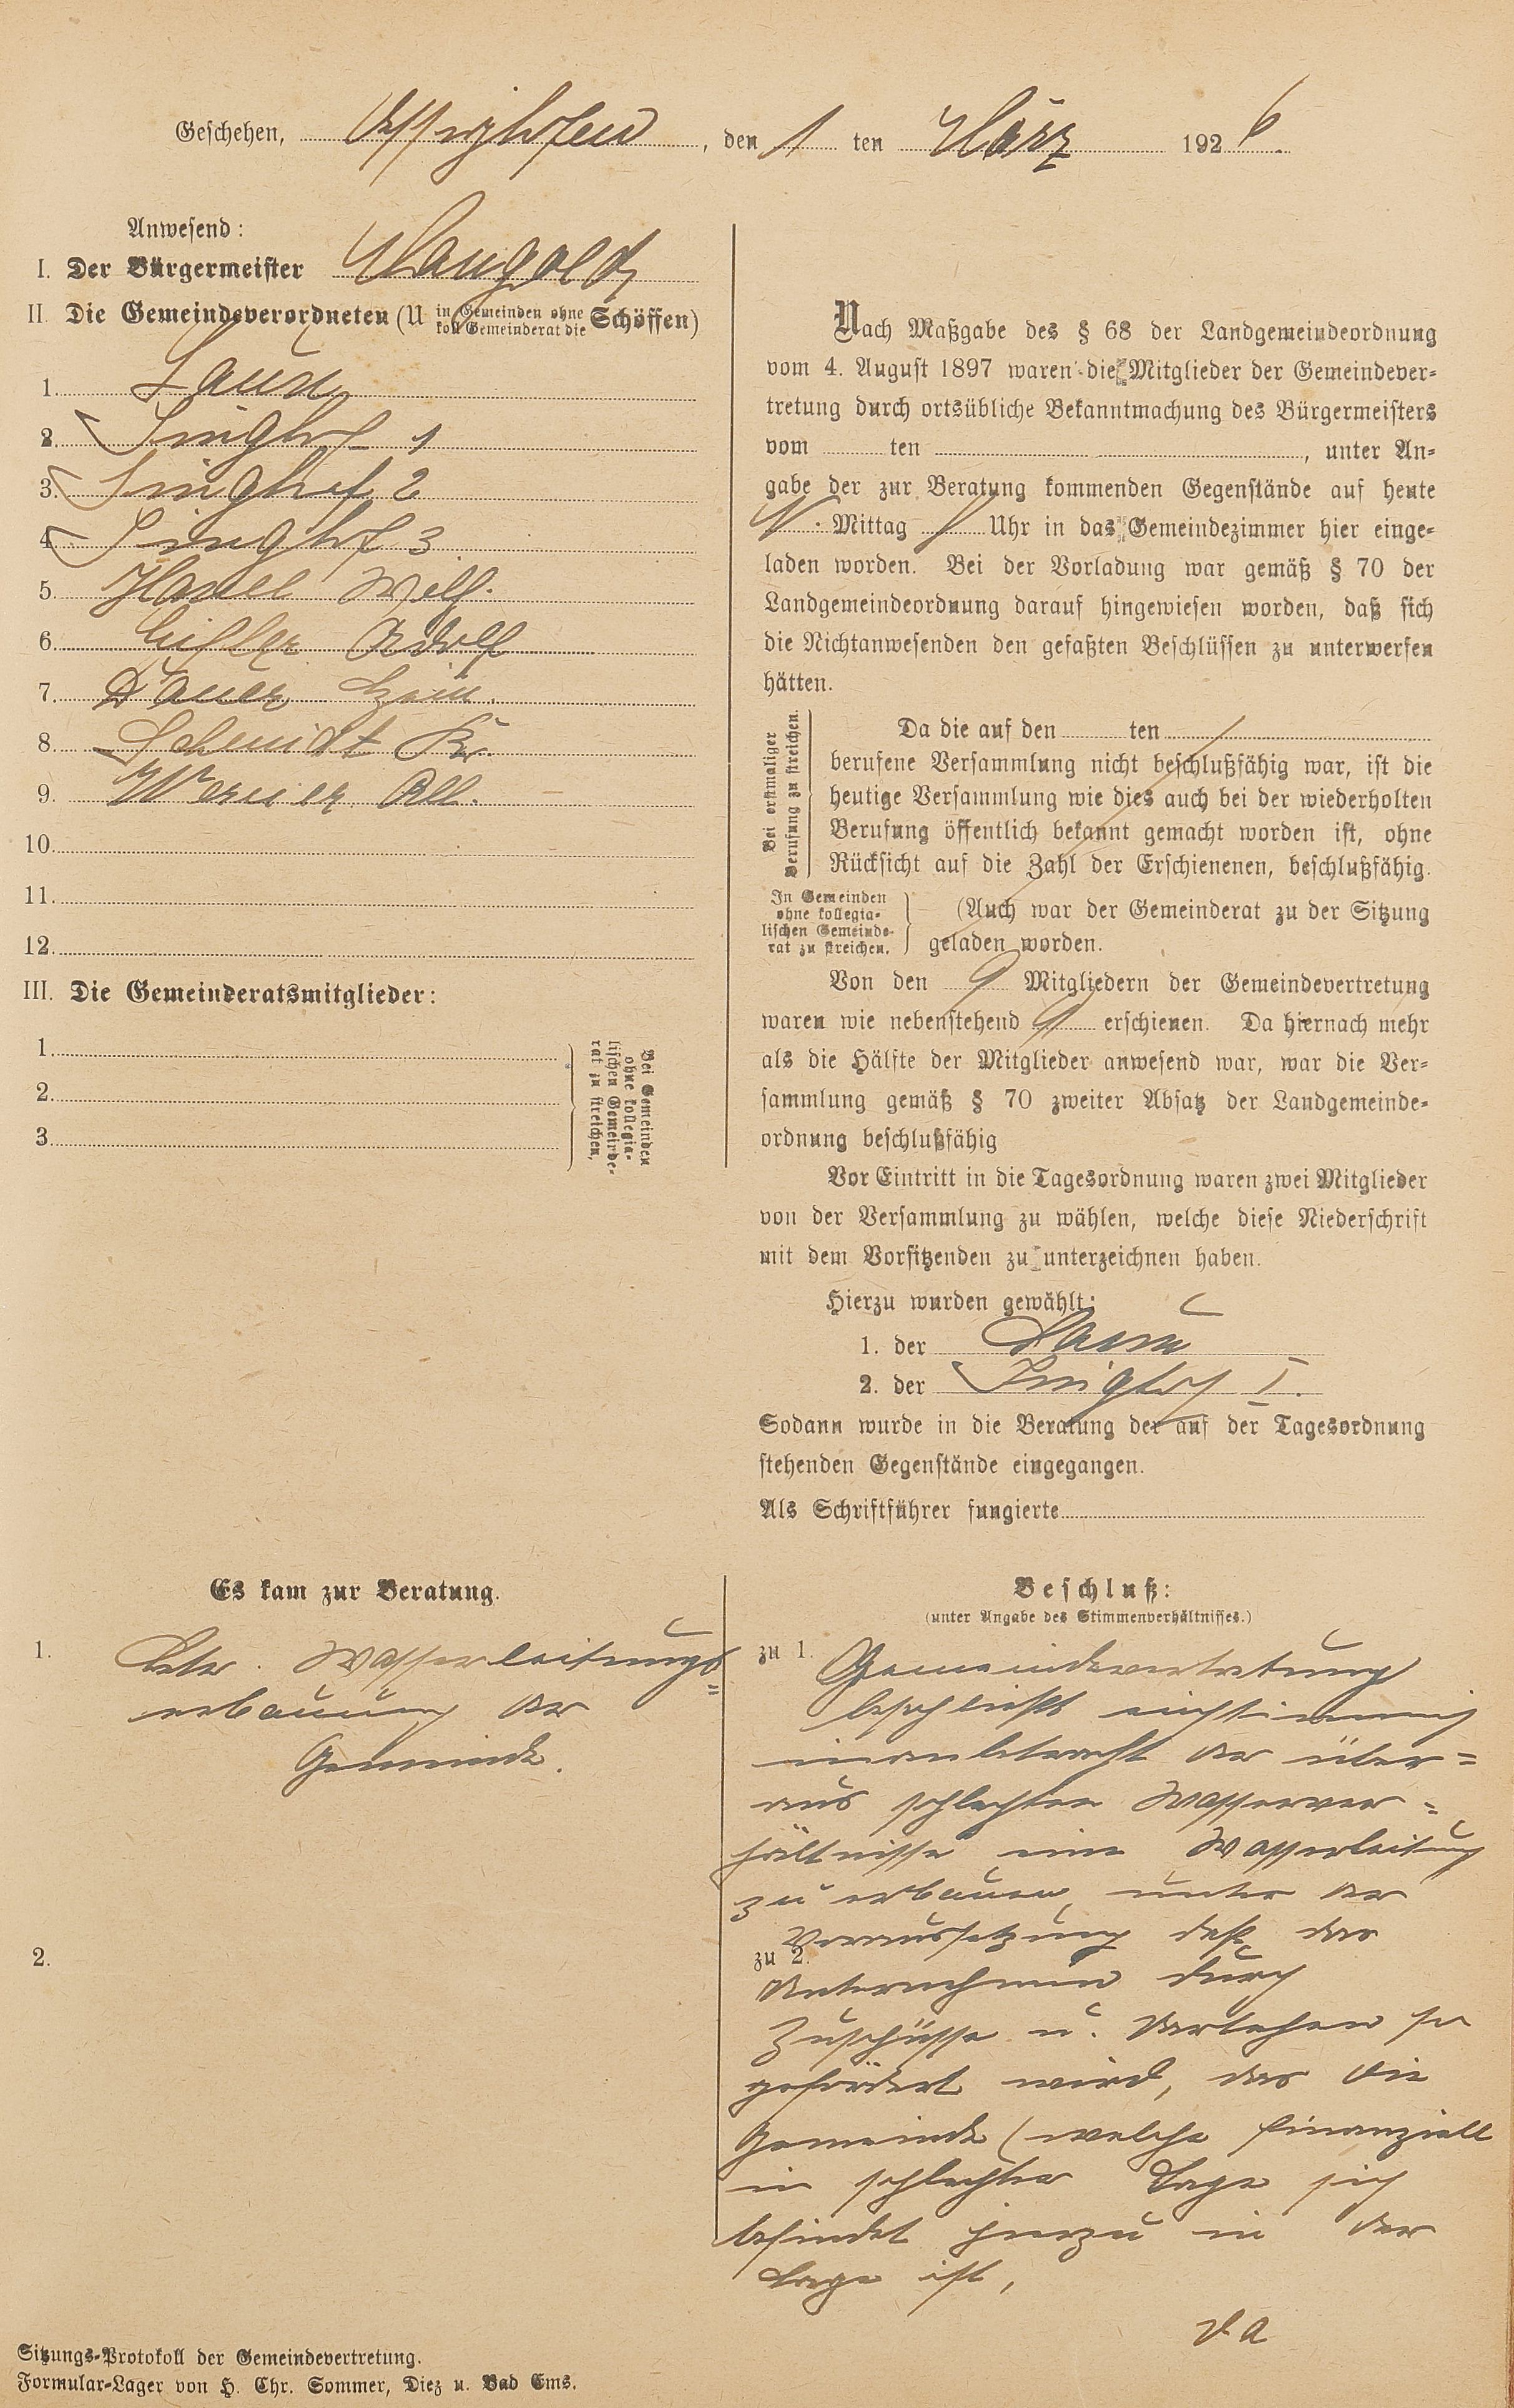 Geschehen, Essighofen, den 1 ten März 1926.
Anwesend:
I. Der Bürgermeister Mangold
II. Die Gemeindeverordneten (U in Gemeinden ohne koll Gemeinderat die Schöffen)
1. Laux
2. Singhof 1
3. Singhof 2
4. Singhof 3
5. Hannel Wilh.
6. Adolf
7.
8. Schmidt Kr.
9. Werner All.
10.
11.
12.
III. Die Gemeinderatsmitglieder:
1.
2.
3.
Bei Gemeinden
ohne kollegia-
lischen Gemeinde-
rat zu streichen.
Nach Maßgabe des § 68 der Landgemeindeordnung
vom 4. August 1897 waren die Mitglieder der Gemeindever-
tretung durch ortsübliche Bekanntmachung des Bürgermeisters
vom ten , unter An-
gabe der zur Beratung kommenden Gegenstände auf heute
Mittag Uhr in das Gemeindezimmer hier einge-
laden worden. Bei der Vorladung war gemäß § 70 der
Landgemeindeordnung darauf hingewiesen worden, daß sich
die Nichtanwesenden den gefaßten Beschlüssen zu unterwerfen
hätten.
Bei erstmaliger
Berufung zu streichen.
Da die auf den ten
berufene Versammlung nicht beschlußfähig war, ist die
heutige Versammlung wie dies auch bei der wiederholten
Berufung öffentlich bekannt gemacht worden ist, ohne
Rücksicht auf die Zahl der Erschienenen, beschlußfähig.
In Gemeinden
ohne kollegia-
lischen Gemeinde-
rat zu streichen.
(Auch war der Gemeinderat zu der Sitzung
geladen worden.
Von den 9 Mitgliedern der Gemeindevertretung
waren wie nebenstehend 9 erschienen. Da hiernach mehr
als die Hälfte der Mitglieder anwesend war, war die Ver-
sammlung gemäß § 70 zweiter Absatz der Landgemeinde-
ordnung beschlußfähig
Vor Eintritt in die Tagesordnung waren zwei Mitglieder
von der Versammlung zu wählen, welche diese Niederschrift
mit dem Vorsitzenden zu unterzeichnen haben.
Hierzu wurden gewählt:
1. der
2. der Singhof I.
Sodann wurde in die Beratung der auf der Tagesordnung
stehenden Gegenstände eingegangen.
Als Schriftführer fungierte
Es kam zur Beratung.
1. Betr. Wasserleitungs=
erbauung der
Gemeinde.
2.
Beschluß:
(unter Angabe des Stimmenverhältnisses.)
zu 1. Gemeindevertretung
beschließt einstimmig
inanbetracht der über=
aus schlechten Wasserver=
hältnisse eine Wasserleitung
zu erbauen, unter der
Voraussetzung daß das
zu 2.
Unternehmen durch
Zuschüsse u. Darlehen so
gefördert wird, das die
Gemeinde (welche finanziell
in schlechter Lage sich
befindet hierzu in der
Lage ist,
Sitzungs-Protokoll der Gemeindevertretung.
Formular-Lager von H. Chr. Sommer, Diez u. Bad Ems.